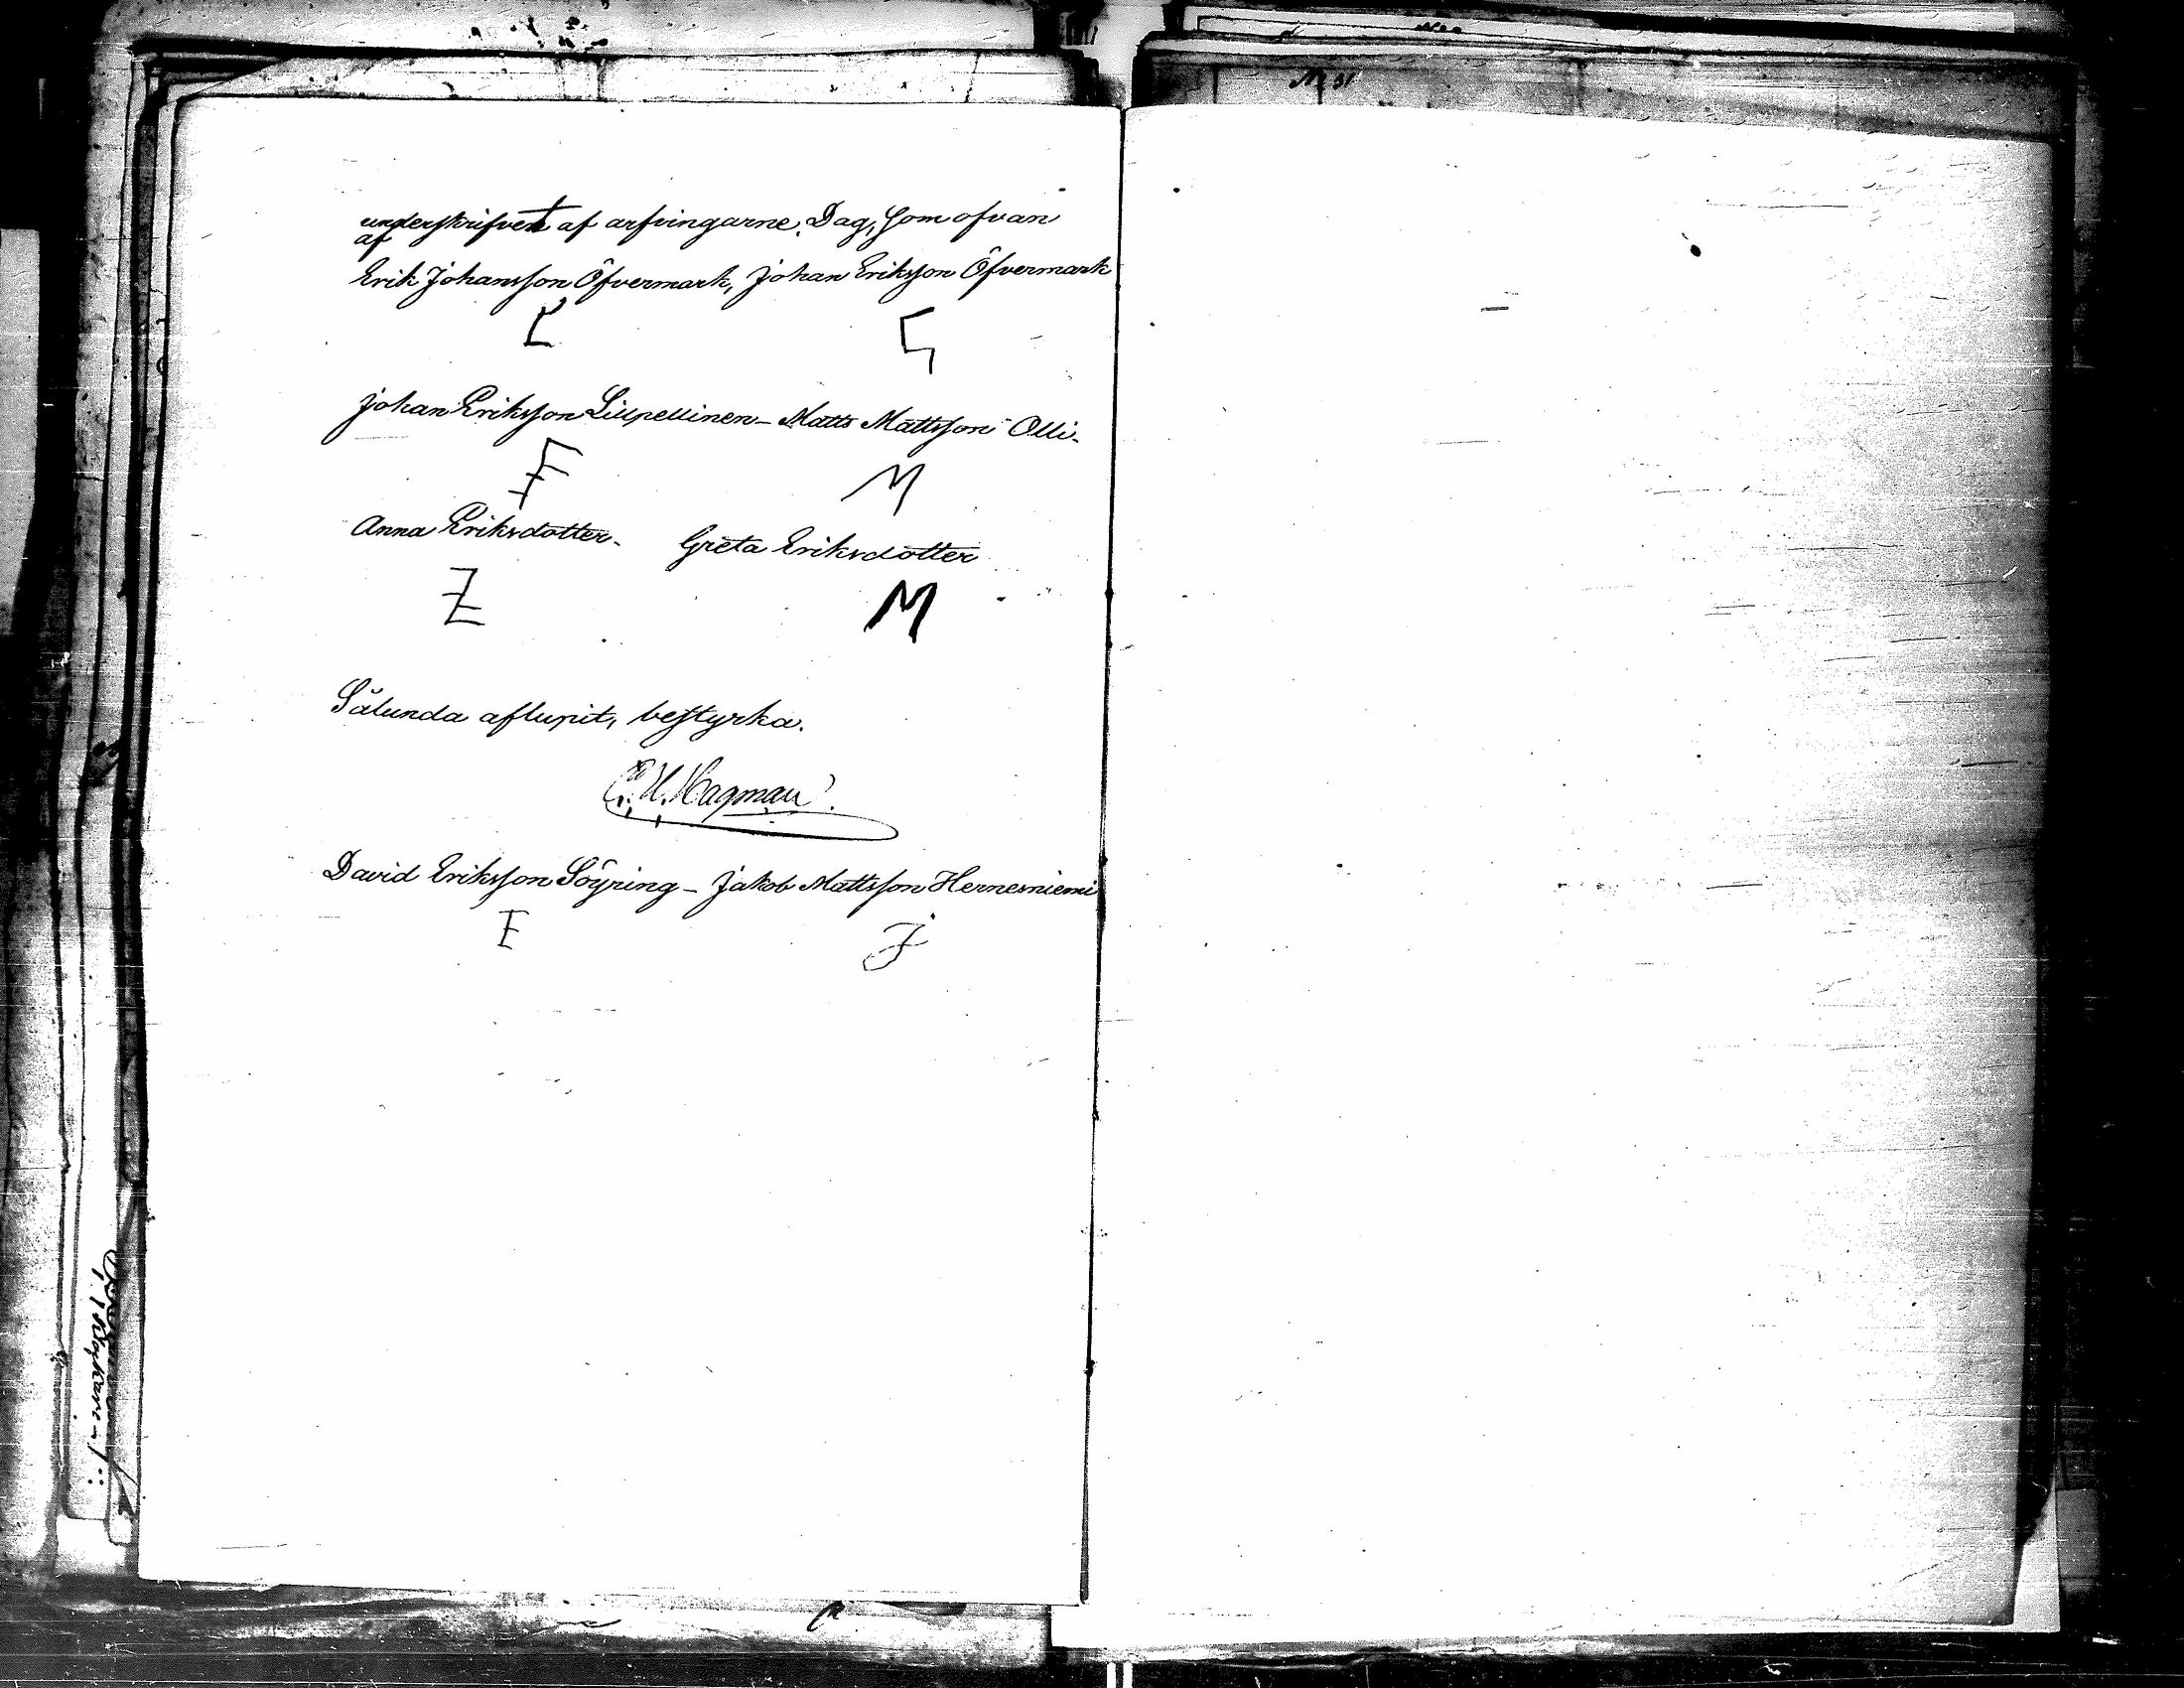 underskrifvet af arfvingarne. Dag, som ofvan
af
Erik Johansson Öfvermark, Johan Eriksson Öfvermark
Johan Eriksson Lillpellinen – Matts Mattsson Olli –
M
Anna Eriksdotter – Greta Eriksdotter
M
Sålunda aflupit, bestyrka.
E. H. Hagman.
David Eriksson Söyring – Jakob Mattsson Hernesniemi